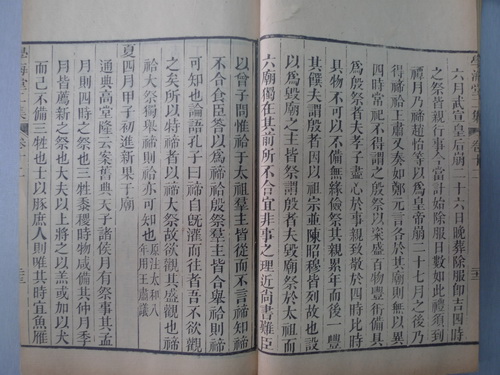 六月武宣皇后崩二十六日晚葬除服即吉四時
之祭皆親行事今當計始除服日數如此禮須到
禫月乃禘趙怡等以為皇帝崩二十七月之後乃
得禘祫王肅又奏如鄭元言各於其廟則無以異
四時常祀不得謂之殷祭以粢盛百物豐衍備具
為殷祭者夫孝子盡心於事親致敬於四時比時
具物不可以不備無緣儉祭其親累年而後一豐
其饌夫謂殷者因以祖宗並陳昭穆皆列故也設
以為毀廟之主皆祭謂殷者夫毀廟祭於太祖而
六廟獨在其前所不合宜非事之理近尚書難臣
以曾子問惟祫于太祖羣主皆從而不言禘知禘
不合食臣荅以為禘祫殷祭羣主皆合舉祫則禘
可知也論語孔子曰禘自既灌而往者吾不欲觀
之矣所以特禘者以禘大祭故欲觀其盛觀也禘
祫大祭獨舉禘則祫亦可知也原注太和八年用王肅議
夏四月甲子初進新果于廟
通典高堂隆云案舊典天子諸侯月有祭事其孟
月則四時之祭也三牲黍稷時物咸備其仲月季
月皆薦新之祭也大夫以上將之以羔或加以犬
而已不備三牲也士以豚庶人則唯其時宜魚雁